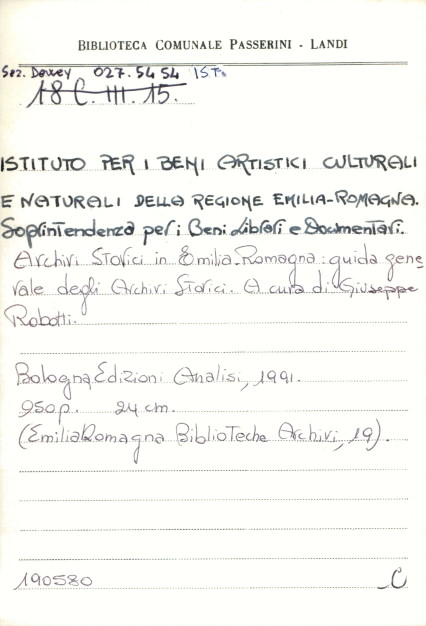 BIBLIOTECA COMUNALE PASSERINI - LANDI
Sez. Dewey 027.54 54 IST.
18 C. III. 15.
ISTITUTO PER I BENI ARTISTICI CULTURALI
E NATURALI DELLA REGIONE EMILIA-ROMAGNA.
Soprintendenza per i Beni Librari e Documentari.
Archivi Storici in Emilia-Romagna: guida gene
rale degli Archivi Storici. A cura di Giuseppe
Rabotti.
Bologna, Edizioni Analisi, 1991.
950 p. 24 cm.
(Emilia Romagna Biblioteche Archivi, 19).
190580 C